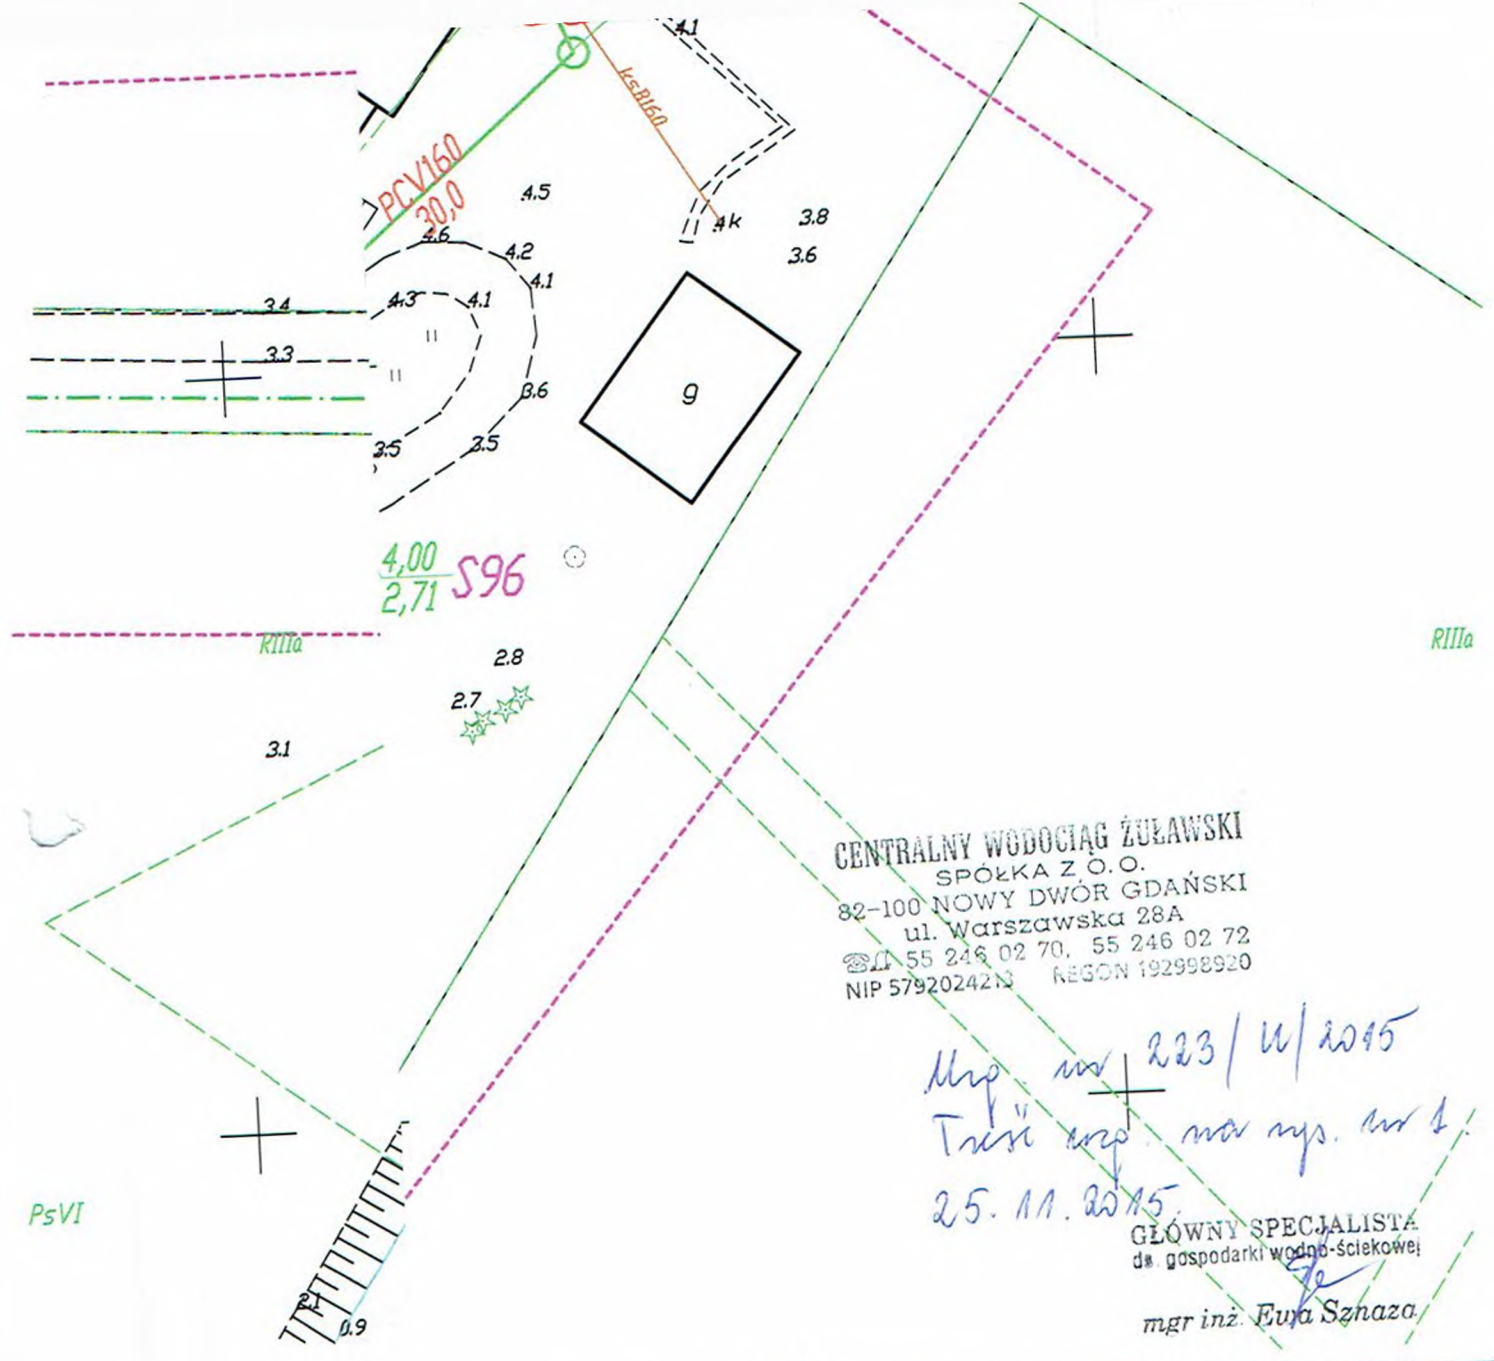 4.1
ksB160
PCV160
30,0
4.5
4k
3.8
4.6
4.2
3.6
4.1
3.4
4.3
4.1
3.3
g
3.6
3.5
3.5
4,00
2,71
S96
RIIIa
RIIIa
2.8
2.7
3.1
CENTRALNY WODOCIĄG ŻUŁAWSKI
SPÓŁKA Z O.O.
82-100 NOWY DWÓR GDAŃSKI
ul. Warszawska 28A
55 246 02 70, 55 246 02 72
NIP 5792024213 REGON 192998920
Uzg. nr 223/U/2015
Treść uzg. na rys. nr 1.
25.11.2015.
PsVI
GŁÓWNY SPECJALISTA
ds. gospodarki wodno-ściekowej
mgr inż. Ewa Sznaza
2.1
0.9